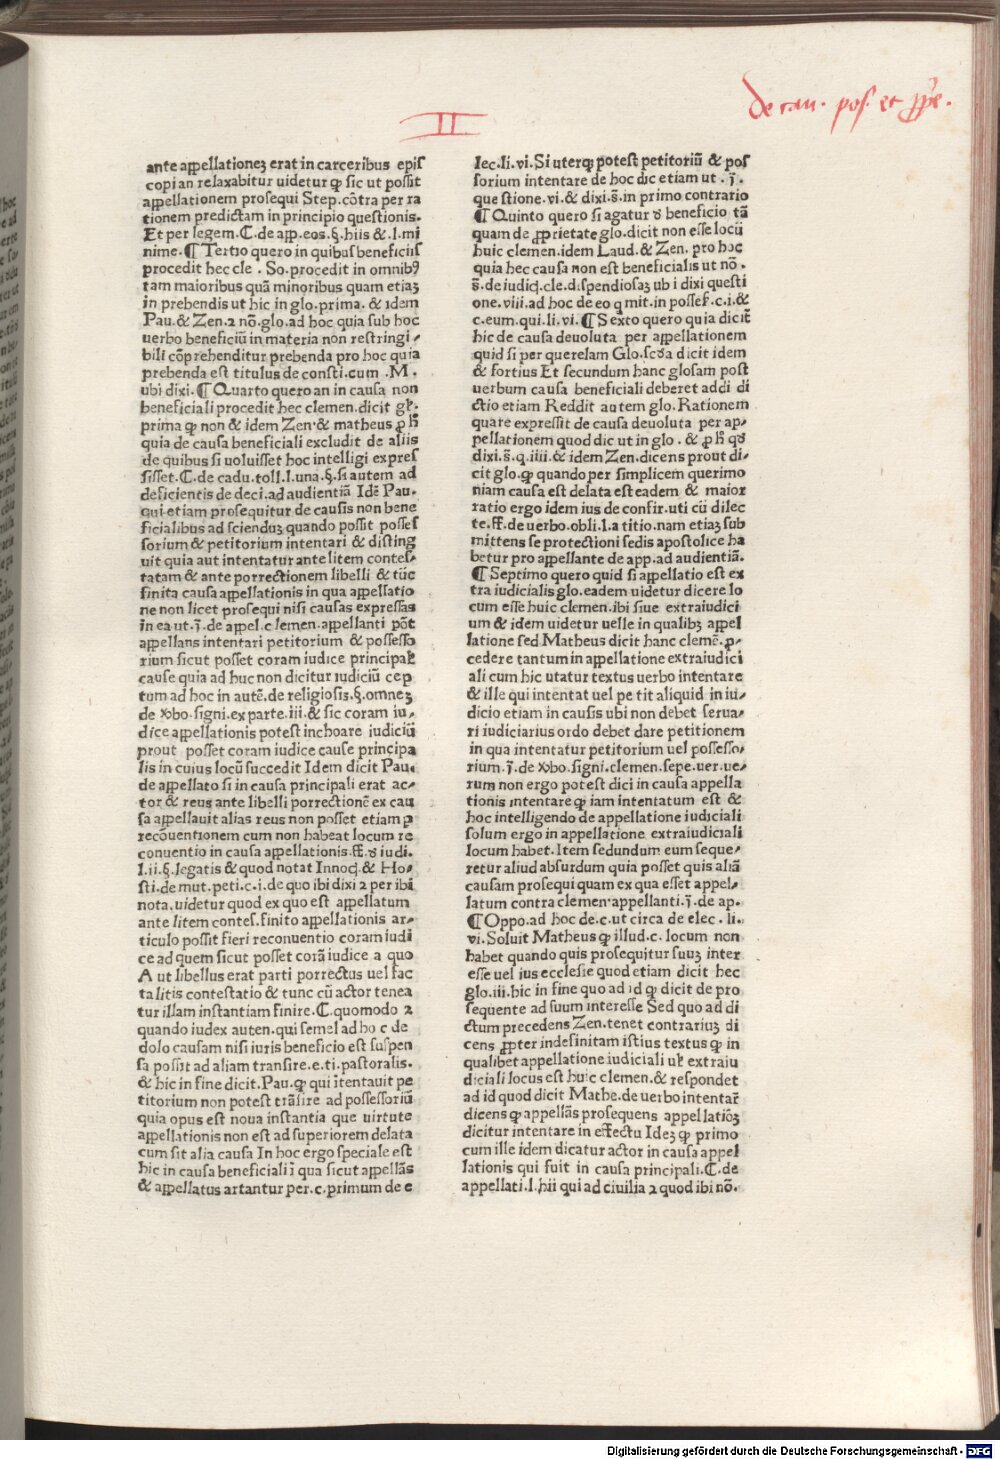 de cau. pos. et ꝓp̄e.
II
ante appellationeꝫ erat in carceribus epiſ
copi an relaxabitur uidetur ꝙ sic ut poſſit
appellationem proſequi Step.cōtra per ra
tionem predictam in principio queſtionis.
Et per legem.C.de app.eos.§.hiis &.l.mi
nime.¶Tertio quero in quibuſ beneficiiſ
procedit hec cle . So.procedit in omnibꝰ
tam maioribus quā minoribus quam etiaꝫ
in prebendis ut hic in glo.prima. & idem
Pau.& Zen.2 nō.glo.ad hoc quia ſub hoc
uerbo beneficiū in materia non reſtringi-
bili cōprehenditur prebenda pro hoc quia
prebenda eſt titulus de conſti.cum .M.
ubi dixi.¶Quarto quero an in cauſa non
beneficiali procedit hec clemen.dicit gł.
prima ꝙ non & idem Zen.& matheus ꝓ ħ
quia de cauſa beneficiali excludit de aliis
de quibus ſi uoluiſſet hoc intelligi expreſ
ſiſſet.C.de cadu.toll.l.una.§.ſi autem ad
deficientis de deci.ad audientiā Idē Pau.
qui etiam proſequitur de cauſis non bene
ficialibus ad ſcienduꝫ quando poſſit poſſeſ
ſorium & petitorium intentari & diſting
uit quia aut intentatur ante litem conteſ-
tatam & ante porrectionem libelli & tūc
finita cauſa appellationis in qua appellatio
ne non licet proſequi niſi cauſas expreſſas
in ea ut.j̄.de appel.clemen.appellanti pōt
appellans intentari petitorium & poſſeſſo
rium ſicut poſſet coram iudice principał
cauſe quia ad huc non dicitur iudiciū cep
tum ad hoc in autē.de religioſiꝫ.§.omneꝫ
de ꝟbo.ſigni.ex parte.iii.& ſic coram iu-
dice appellationis poteſt inchoare iudiciū
prout poſſet coram iudice cauſe principa
lis in cuius locū ſuccedit Idem dicit Pau.
de appellato ſi in cauſa principali erat ac-
tor & reus ante libelli porrectionē ex cau
ſa appellauit alias reus non poſſet etiam ꝑ
recōuentionem cum non habeat locum re
conuentio in cauſa appellationis.ff.ꝺ iudi.
l.ii.§.legatis & quod notat Innoc̄.& Ho-
ſti.de mut.peti.c.i.de quo ibi dixi 2 per ibi
nota.uidetur quod ex quo eſt appellatum
ante litem conteſ.finito appellationis ar-
ticulo poſſit fieri reconuentio coram iudi
ce ad quem ſicut poſſet corā iudice a quo
A ut libellus erat parti porrectus uel fac
ta litis conteſtatio & tunc cū actor tenea
tur illam inſtantiam finire.C.quomodo 2
quando iudex auten.qui ſemel ad ho c de
dolo cauſam niſi iuris beneficio eſt ſuſpen
ſa poſſit ad aliam tranſire.e.ti.paſtoralis.
& hic in fine dicit.Pau.ꝙ qui ītentauit pe
titorium non poteſt trāſire ad poſſeſſoriū
quia opus eſt noua inſtantia que uirtute
appellationis non eſt ad ſuperiorem delata
cum ſit alia cauſa In hoc ergo ſpeciale eſt
hic in cauſa beneficiali ī qua ſicut appellās
& appellatus artantur per.c.primum de e
lec.li.vi.Si uterqꝫ poteſt petitoriū & poſ
ſorium intentare de hoc dic etiam ut . j̄.
que ſtione.vi.& dixi.s̄.in primo contrario
¶Quinto quero ſi agatur ꝺ beneficio tā
quam de ꝓprietate glo.dicit non eſſe locū
huic clemen.idem Laud.& Zen. pro hoc
quia hec cauſa non eſt beneficialis ut nō.
s̄.de iudic̄.cle.diſpendioſaꝫ ub i dixi queſti
one.viii.ad hoc de eo q mit.in poſſeſ.c.i.&
c.eum.qui.li.vi.¶Sexto quero quia dicit̄
hic de cauſa deuoluta per appellationem
quid ſi per querelam Glo.ſcd̄a dicit idem
& fortius Et ſecundum hanc gloſam poſt
uerbum cauſa beneficiali deberet addi di
ctio etiam Reddit autem glo.Rationem
quare expreſſit de cauſa deuoluta per ap-
pellationem quod dic ut in glo . & ꝓ ħ qd̄
dixi.s̄.q.iiii.& idem Zen.dicens prout di-
cit glo.ꝙ quando per ſimplicem querimo
niam cauſa eſt delata eſt eadem & maior
ratio ergo idem ius de confir.uti cū dilec
te.ff.de uerbo.obli.l.a titio.nam etiaꝫ ſub
mittens ſe protectioni ſedis apoſtolice ha
betur pro appellante de app.ad audientiā.
¶Septimo quero quid ſi appellatio eſt ex
tra iudicialis glo.eadem uidetur dicere lo
cum eſſe huic clemen.ibi ſiue extraiudici
um & idem uidetur uelle in qualibꝫ appel
latione ſed.Matheus dicit hanc clemē.ꝓ-
cedere tantum in appellatione extraiudici
ali cum hic utatur textus uerbo intentare
& ille qui intentat uel pe tit aliquid in iu-
dicio etiam in cauſis ubi non debet ſerua-
ri iudiciarius ordo debet dare petitionem
in qua intentatur petitorium uel poſſeſſo-
rium.j̄.de ꝟbo.ſigni.clemen.ſepe.uer.ue-
rum non ergo poteſt dici in cauſa appella
tionis intentare ꝙ iam intentatum eſt &
hoc intelligendo de appellatione iudiciali
ſolum ergo in appellatione extraiudiciali
locum habet.Item ſedundum eum ſeque-
retur aliud abſurdum quia poſſet quis aliā
cauſam proſequi quam ex qua eſſet appel-
latum contra clemen.appellanti.j̄.de ap.
¶Oppo.ad hoc de.c.ut circa de elec. li.
vi.Soluit Matheus ꝙ illud.c. locum non
habet quando quis proſequitur ſuuꝫ inter
eſſe uel ius eccleſie quod etiam dicit hec
glo.iii.hic in fine quo ad id ꝙ dicit de pro
ſequente ad ſuum intereſſe Sed quo ad di
ctum precedens Zen.tenet contrariuꝫ di
cens ꝓpter indefinitam iſtius textus ꝙ in
qualibet appellatione iudiciali uł extraiu
diciali locus eſt huic clemen.& reſpondet
ad id quod dicit Mathe.de uerbo intentar̄
dicens ꝙ appellās proſequens appellatiōꝫ
dicitur intentare in effectu Ideꝫ ꝙ primo
cum ille idem dicatur actor in cauſa appel
lationis qui fuit in cauſa principali.C.de
appellati.l.hii qui ad ciuilia 2 quod ibi nō.
Digitalisierung gefördert durch die Deutsche Forschungsgemeinschaft - DFG